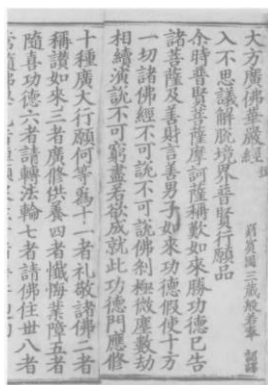 大方廣佛華嚴經
罽賓國三藏般若奉 詔譯
入不思議解脫境界普賢行願品
尒時普賢菩薩摩訶薩稱歎如來勝功德已告
諸菩薩及善財言善男子如來功德假使十方
一切諸佛經不可說不可說佛剎極微塵數劫
相續演說不可窮盡若欲成就此功德門應修
十種廣大行願何等爲十一者礼敬諸佛二者
稱讃如來三者廣修供養四者懺悔業障五者
随喜功德六者請轉法輪七者請佛住世八者